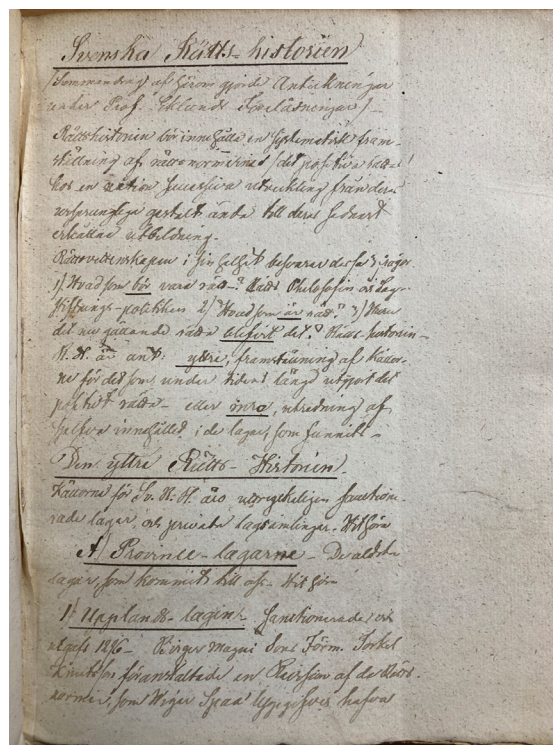 Svenska Rätts-historien
(Sammandrag af härom gjorda Anteckningar
under Prof. Eklunds Föreläsningar) –
Rättshistorien bör innehålla en systematisk fram-
ställning af rättsnormernas (det positiva rätta)
hos en nation successiva utveckling från deras
ursprungliga gestalt ända till deras sednast
erhållna utbildning.
Rättsvetenskapen i sin helhet besvarar dessa 3 frågor
1) Hvad som bör vara rätt? Rätts Philosophie och Lag-
stiftnings-politiken 2) Hvad som är rätt? 3) Huru
det nu gällande rätta blifvit det? Rätts-historien –
R. H. är ant. yttre, framställning af källor-
ne för det som under tidens längd utgjort det
positivt rätta – eller inre, utredning af
sjelfva innehållet i de lagar, som funnits –
Den yttre Rätts-Historien.
Källorne för Sv. R. H. äro sanctione-
rade lagar, och privata lagsamlingar. Hit höra
A) Province-lagarne – De äldsta
lagar, som kommit till oss. Hit höra
1) Upplands-lagen, sanctionerad och
utgafs 1296 – Birger Magni Sons Förm. Torkel
Knutsson föranstaltade en Revision af de Rätts
normer, som Wiger Spaa Uppgifves hafva